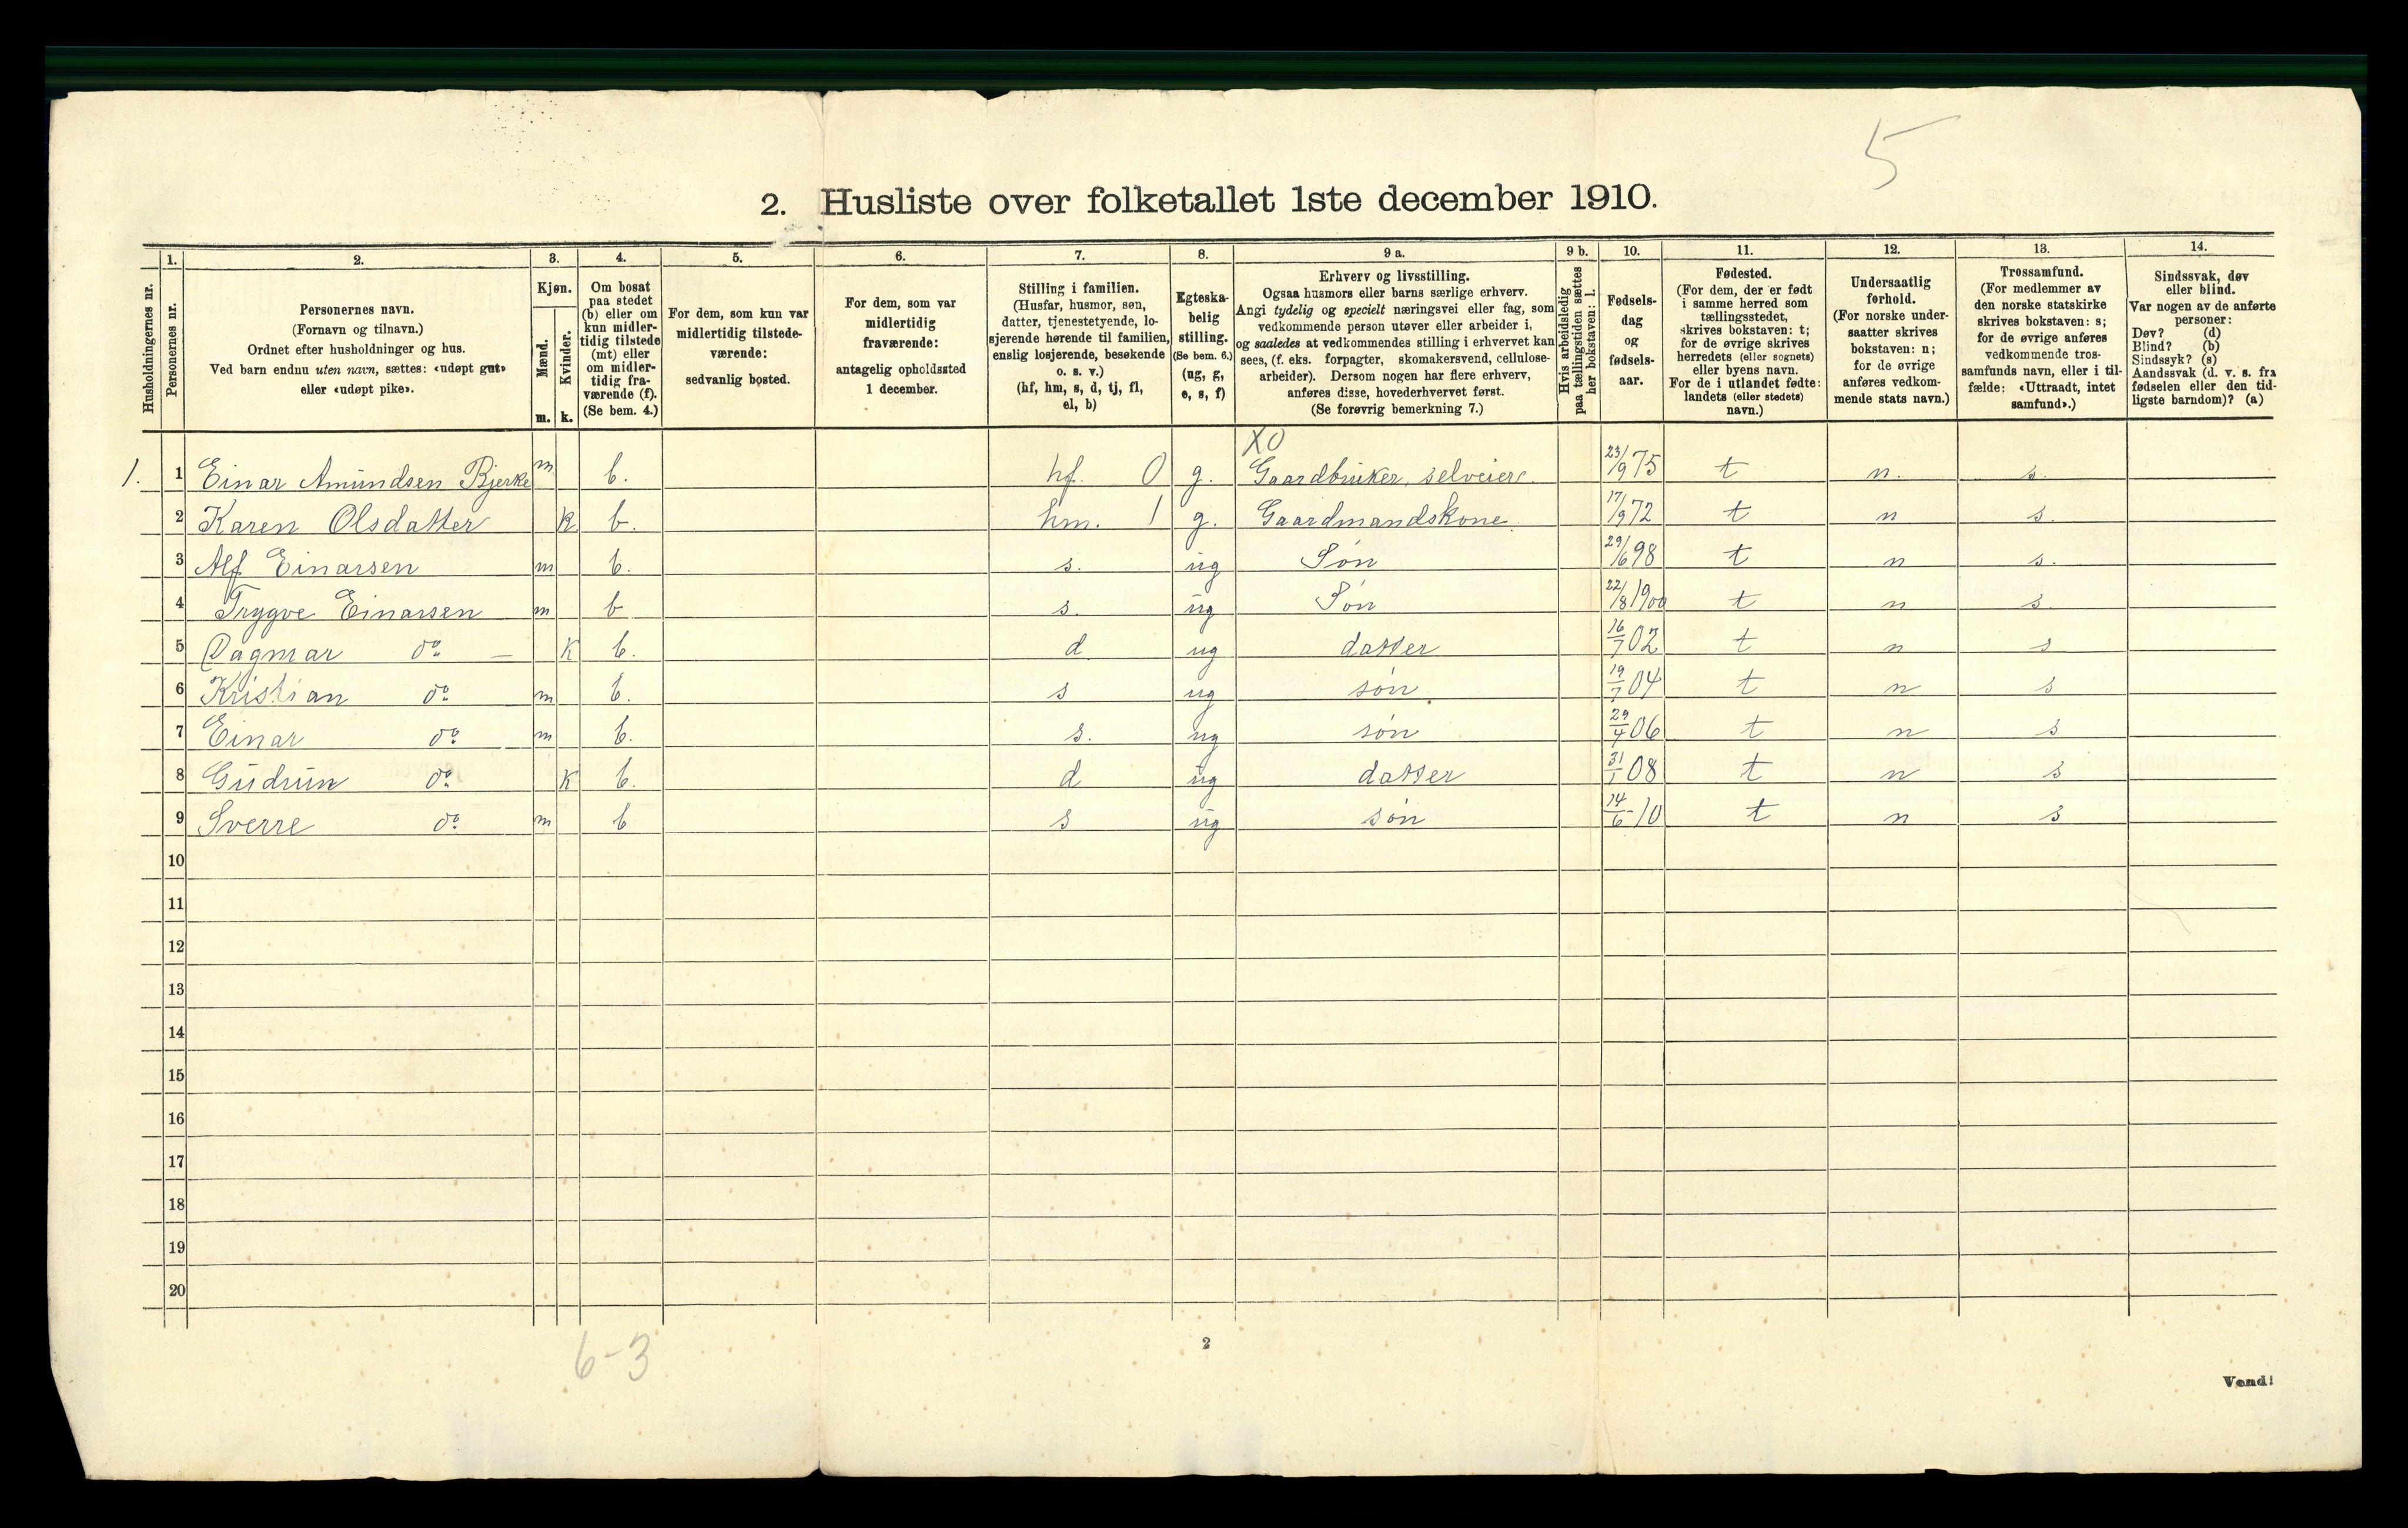 5
2. Husliste over folketallet 1ste december 1910.
Husholdningernes nr.
1.
Personernes nr.
2.
Personernes navn.
(Fornavn og tilnavn.)
Ordnet efter husholdninger og hus.
Ved barn endnu uten navn, sættes: «udøpt gut»
eller «udøpt pike».
3.
Kjøn.
Mænd.
Kvinder.
m. k.
4.
Om bosat
paa stedet
(b) eller om
kun midler-
tidig tilstede
(mt) eller
om midler-
tidig fra-
værende (f).
(Se bem. 4.)
5.
For dem, som kun var
midlertidig tilstede-
værende:
sedvanlig bosted.
6.
For dem, som var
midlertidig
fraværende:
antagelig opholdssted
1 december.
7.
Stilling i familien.
(Husfar, husmor, søn,
datter, tjenestetyende, lo-
sjerende hørende til familien,
enslig losjerende, besøkende
o. s. v.)
(hf, hm, s, d, tj, fl,
el, b)
8.
Egteska-
belig
stilling.
(Se bem. 6.)
(ug, g,
e, s, f)
9 a.
Erhverv og livsstilling.
Ogsaa husmors eller barns særlige erhverv.
Angi tydelig og specielt næringsvei eller fag, som
vedkommende person utøver eller arbeider i,
og saaledes at vedkommendes stilling i erhvervet kan
sees, (f. eks. forpagter, skomakersvend, cellulose-
arbeider). Dersom nogen har flere erhverv,
anføres disse, hovederhvervet først.
(Se forøvrig bemerkning 7.)
9 b.
Hvis arbeidsledig
paa tællingstiden sættes
her bokstaven: l.
10.
Fødsels-
dag
og
fødsels-
aar.
11.
Fødested.
(For dem, der er født
i samme herred som
tællingsstedet,
skrives bokstaven: t;
for de øvrige skrives
herredets (eller sognets)
eller byens navn.
For de i utlandet fødte:
landets (eller stedets)
navn.)
12.
Undersaatlig
forhold.
(For norske under-
saatter skrives
bokstaven: n;
for de øvrige
anføres vedkom-
mende stats navn.)
13.
Trossamfund.
(For medlemmer av
den norske statskirke
skrives bokstaven: s;
for de øvrige anføres
vedkommende tros-
samfunds navn, eller i til-
fælde: «Uttraadt, intet
samfund».)
14.
Sindssvak, døv
eller blind.
Var nogen av de anførte
personer:
Døv? (d)
Blind? (b)
Sindssyk? (s)
Aandssvak (d. v. s. fra
fødselen eller den tid-
ligste barndom)? (a)
XO
1. 1 Einar Amundsen Bjerke m b. hf. 0 g. Gaardbruker, selveier. 23/9 75 t n. s.
2 Karen Olsdatter k b. hm. 1 g. Gaardmandskone. 17/9 72 t n s.
3 Alf Einarsen m b. s. ug Søn 29/6 98 t n s.
4 Trygve Einarsen m b s. ug Søn 22/8 1900 t n s.
5 Dagmar do — k b. d. ug datter 16/7 02 t n s
6 Kristian do m b. s ug søn. 19/7 04 t n s
7 Einar do m b. s. ug søn 29/4 06 t n s
8 Gudrun do k b. d ug datter 31/1 08 t n s
9 Sverre do m b s ug søn 14/6 10 t n s
10
11
12
13
14
15
16
17
18
19
20
6-3
2
Vend!